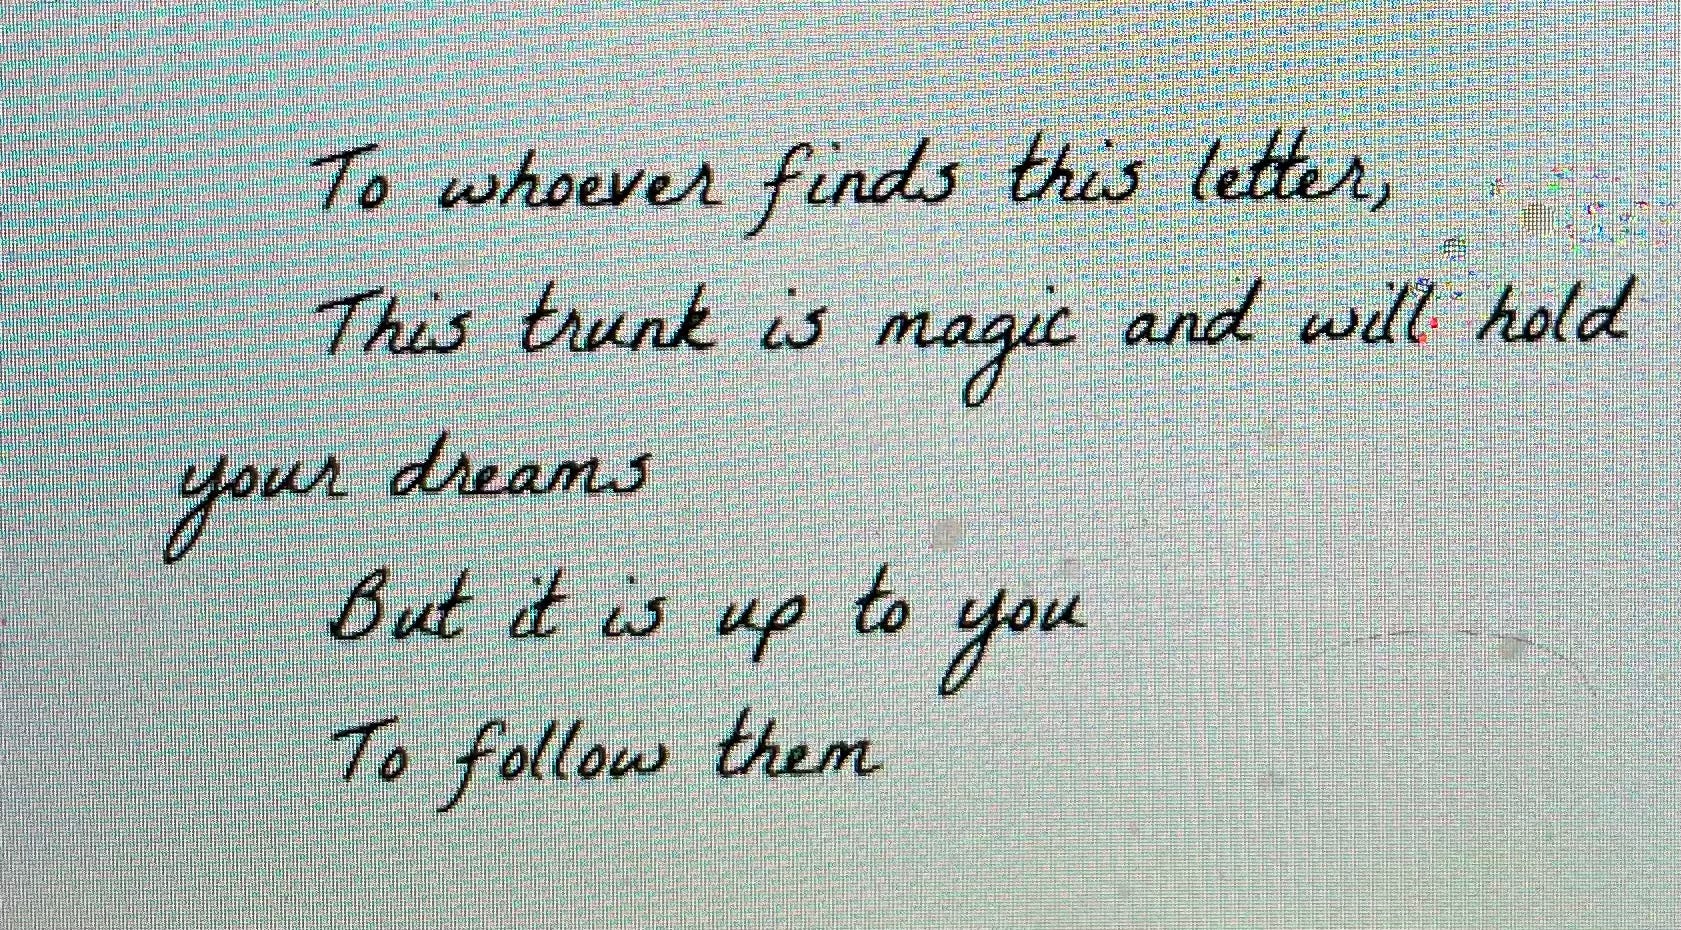 To whoever finds this letter,
This trunk is magic and will hold
your dreams
But it is up to you
To follow them